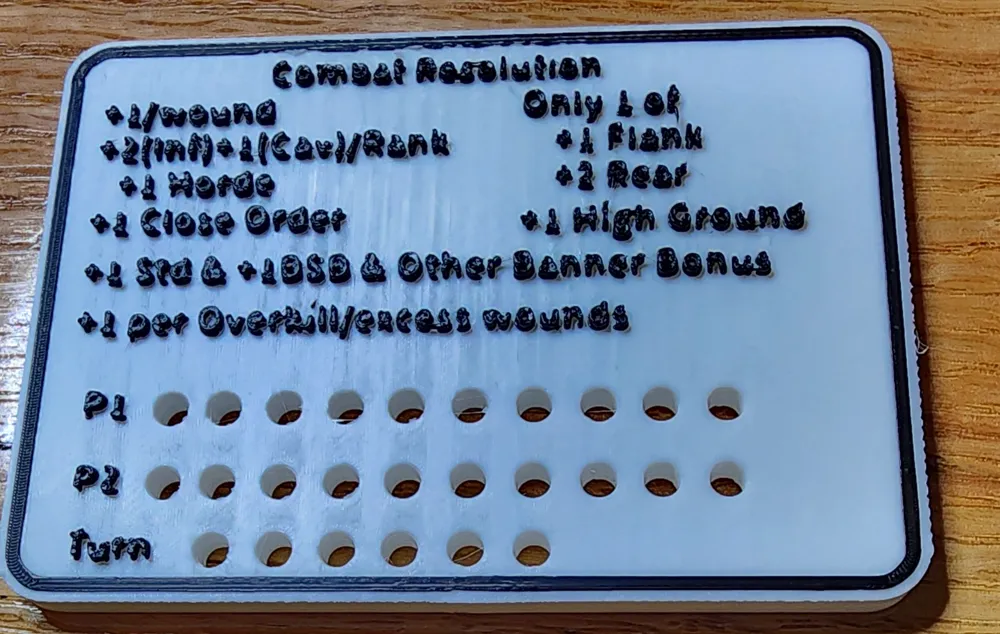 Combat Resolution
+1/wound
Only 1 of
+2(Inf)+1(Cav)/Rank
+1 Flank
+1 Horde
+2 Rear
+1 Close Order
+1 High Ground
+1 Std & +1BSB & Other Banner Bonus
+1 per Overkill/excess wounds
P1
P2
Turn